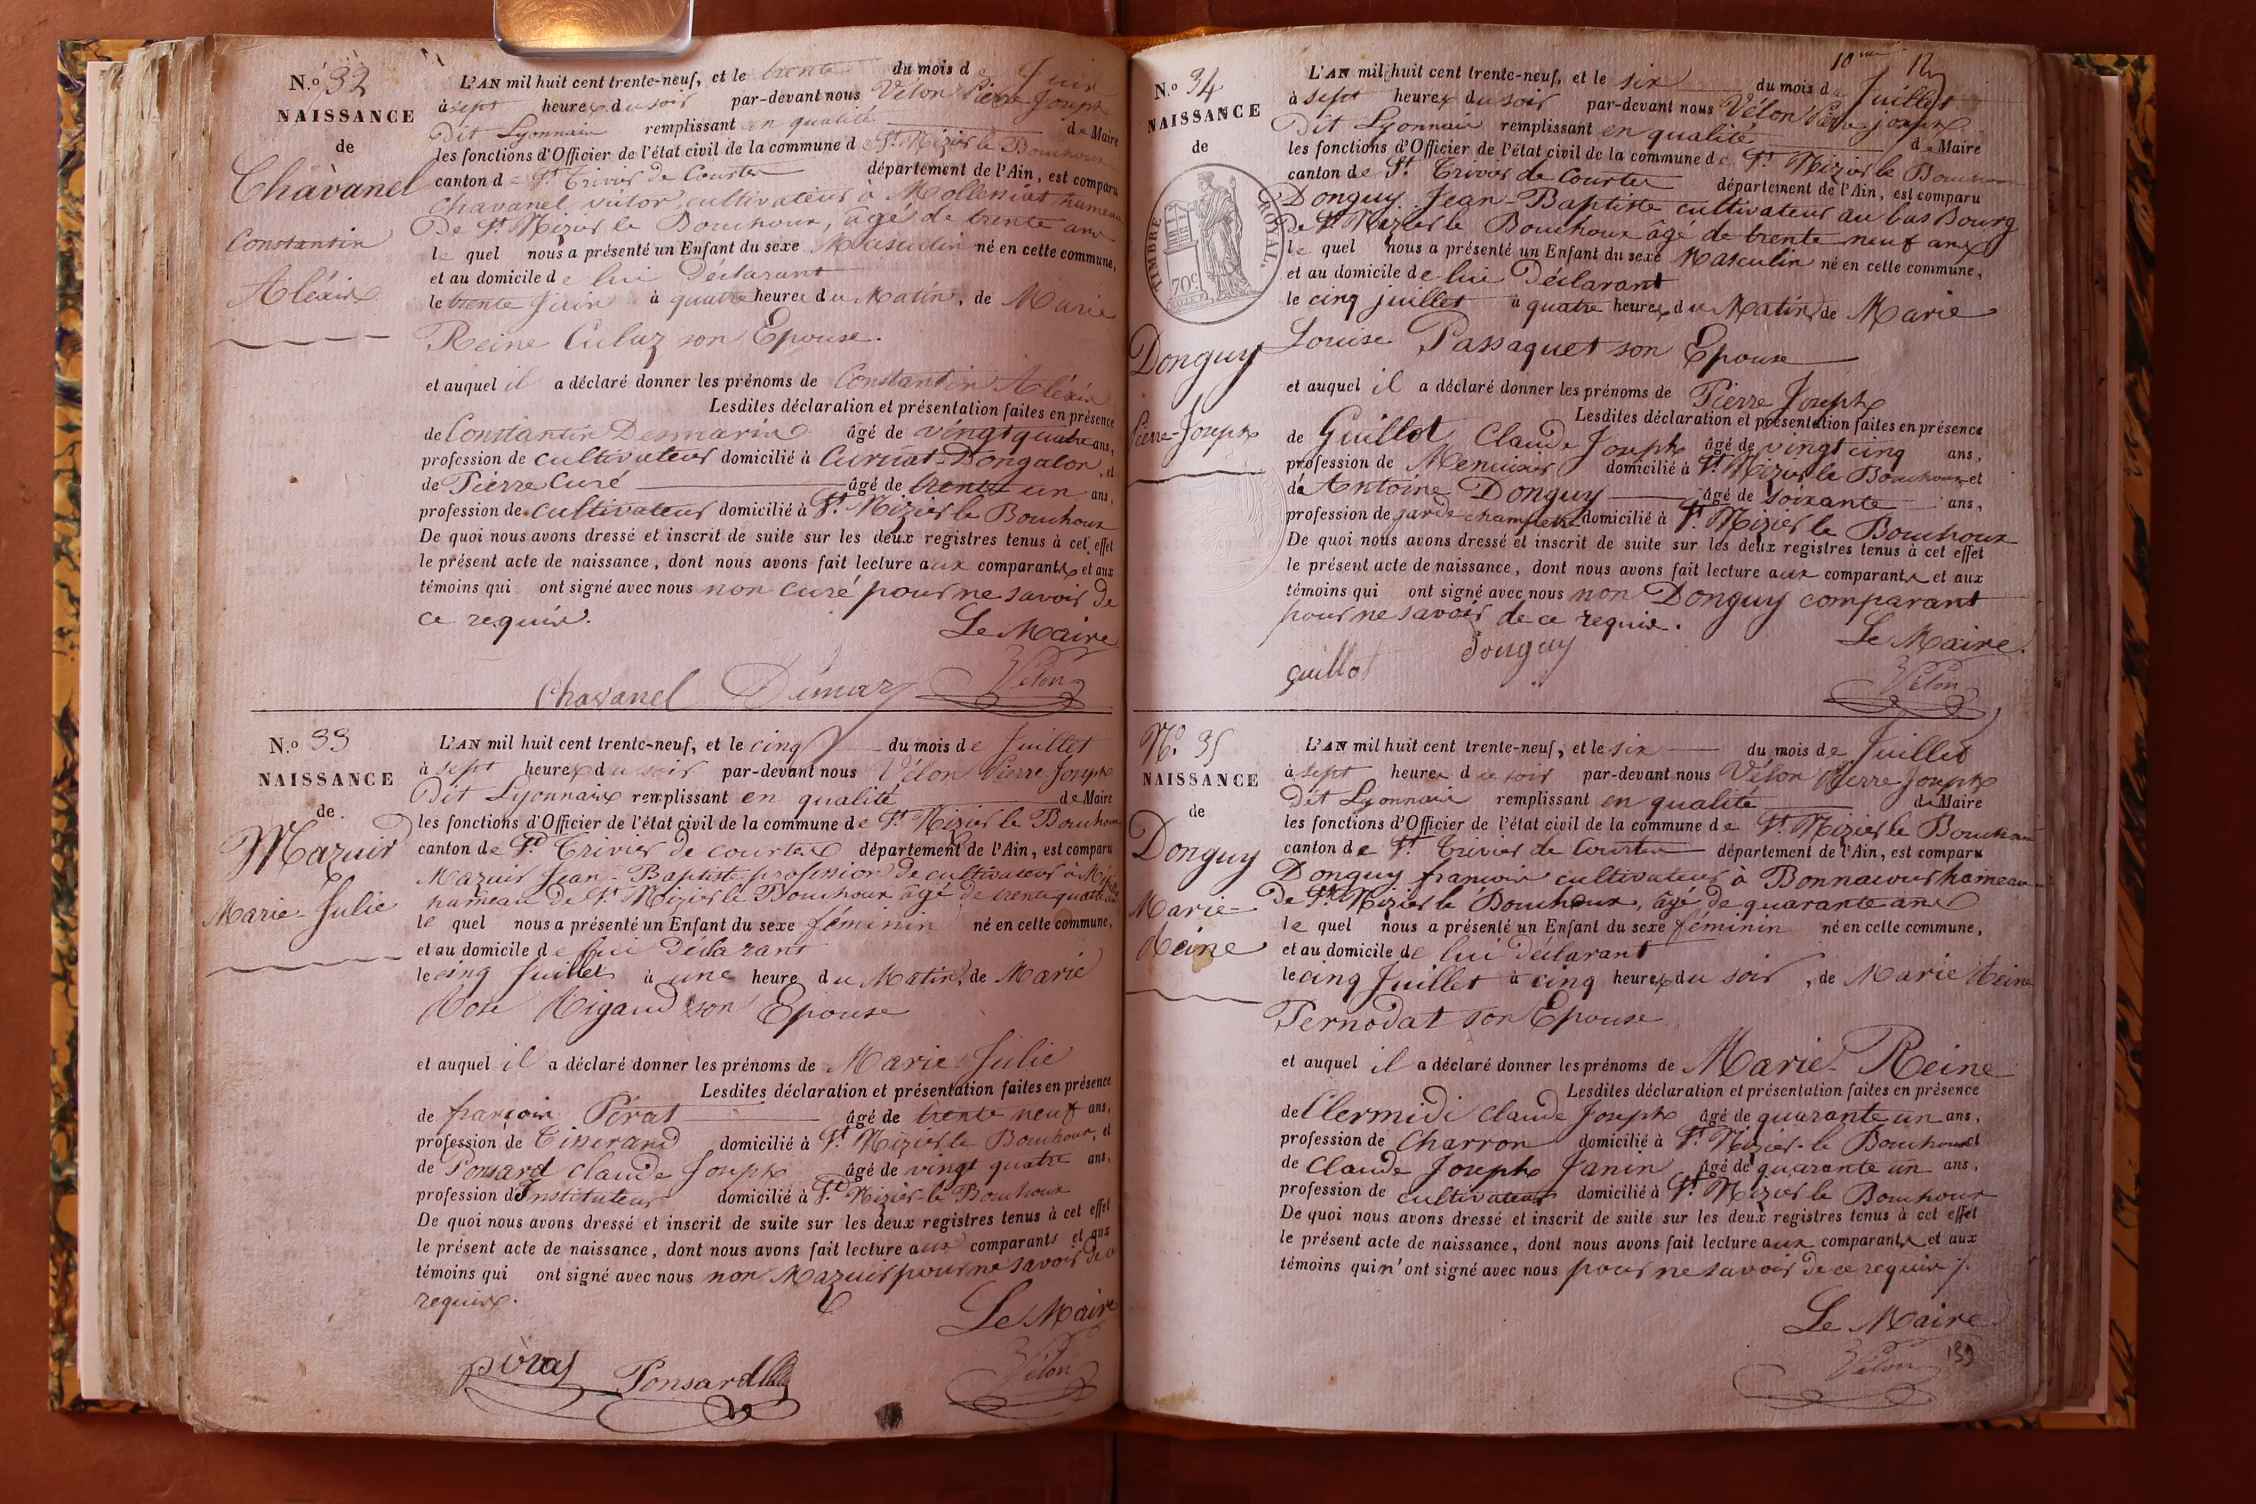 N.o 32
NAISSANCE
de
Chavanel
Constantin
Aléxis
L'AN mil huit cent trente-neuf, et le trente du mois de Juin
à sept heures du soir par-devant nous Vélon Pierre Joseph
Dit Lyonnais remplissant en qualité de Maire
les fonctions d'Officier de l'état civil de la commune de St. Nizier le Bouchoux
canton de St. Trivier de Courtes département de l'Ain, est comparu
Chavanel victor, cultivateur à Molleniat hameau
De St. Nizier le Bouchoux, âgé de trente ans
le quel nous a présenté un Enfant du sexe Masculin né en cette commune,
et au domicile de lui Déclarant
le trente Juin à quatre heures du Matin, de Marie
Reine Culaz son Epouse.
et auquel il a déclaré donner les prénoms de Constantin Aléxis
Lesdites déclaration et présentation faites en présence
de Constantin Desmaris âgé de vingt quatre ans,
profession de cultivateur domicilié à Curciat-Dongalon, et
de Pierre Curé âgé de trente un ans,
profession de cultivateur domicilié à St. Nizier le Bouchoux
De quoi nous avons dressé et inscrit de suite sur les deux registres tenus à cet effet
le présent acte de naissance, dont nous avons fait lecture aux comparants et aux
témoins qui ont signé avec nous non curé pour ne savoir de
ce requis.
Le Maire
Chavanel Vélon
N.o 33
NAISSANCE
de
Mazuir
Marie-Julie
L'AN mil huit cent trente-neuf, et le cinq du mois de Juillet
à sept heures du soir par-devant nous Vélon Pierre Joseph
Dit Lyonnais remplissant en qualité de Maire
les fonctions d'Officier de l'état civil de la commune de St. Nizier le Bouchoux
canton de St. Trivier de courtes département de l'Ain, est comparu
Mazuir Jean-Baptiste profession de cultivateur à
hameau de St. Nizier le Bouchoux âgé de trente quatre ans
le quel nous a présenté un Enfant du sexe féminin né en cette commune,
et au domicile de lui déclarant
le cinq Juillet à une heure du Matin, de Marie
Rose Rigaud son Epouse
et auquel il a déclaré donner les prénoms de Marie Julie
Lesdites déclaration et présentation faites en présence
de françois Pérat âgé de trente neuf ans,
profession de Tisserand domicilié à St. Nizier le Bouchoux, et
de Ponsard claude Joseph âgé de vingt quatre ans,
profession d'Instituteur domicilié à St. Nizier-le Bouchoux
De quoi nous avons dressé et inscrit de suite sur les deux registres tenus à cet effet
le présent acte de naissance, dont nous avons fait lecture aux comparants et aux
témoins qui ont signé avec nous non Mazuir pour ne savoir de ce
requis.
Le Maire
pérat Ponsard Vélon
10me 12
N.o 34
NAISSANCE
de
TIMBRE ROYAL.
70c
Donguy
Pierre-Joseph
L'AN mil huit cent trente-neuf, et le six du mois de Juillet
à sept heures du soir par-devant nous Vélon Pierre joseph
Dit Lyonnais remplissant en qualité de Maire
les fonctions d'Officier de l'état civil de la commune de St. Nizier le Bouchoux
canton de St. Trivier de Courtes département de l'Ain, est comparu
Donguy Jean-Baptiste cultivateur au bas Bourg
De St. Nizier le Bouchoux âgé de trente neuf ans
le quel nous a présenté un Enfant du sexe Masculin né en cette commune,
et au domicile de lui Déclarant
le cinq juillet à quatre heures du Matin, de Marie
Louise Passaquet son Epouse
et auquel il a déclaré donner les prénoms de Pierre Joseph
Lesdites déclaration et présentation faites en présence
de Guillot Claude Joseph âgé de vingt cinq ans,
profession de Menuisier domicilié à St. Nizier le Bouchoux et
de Antoine Donguy âgé de soixante ans,
profession de garde champetre domicilié à St. Nizier le Bouchoux
De quoi nous avons dressé et inscrit de suite sur les deux registres tenus à cet effet
le présent acte de naissance, dont nous avons fait lecture aux comparants et aux
témoins qui ont signé avec nous non Donguy comparant
pour ne savoir de ce requis.
Le Maire
guillot donguy Vélon
No. 35
NAISSANCE
de
Donguy
Marie-
Reine
L'AN mil huit cent trente-neuf, et le six du mois de Juillet
à sept heures du soir par-devant nous Vélon Pierre Joseph
Dit Lyonnais remplissant en qualité de Maire
les fonctions d'Officier de l'état civil de la commune de St. Nizier le Bouchoux
canton de St. Trivier de Courtes département de l'Ain, est comparu
Donguy françois cultivateur à Bonnacour hameau
De St. Nizier le Bouchoux, âgé de quarante ans
le quel nous a présenté un Enfant du sexe féminin né en cette commune,
et au domicile de lui déclarant
le cinq Juillet à cinq heures du soir, de Marie Reine
Pernodat son Epouse
et auquel il a déclaré donner les prénoms de Marie-Reine
Lesdites déclaration et présentation faites en présence
de Clermidi claude Joseph âgé de quarante un ans,
profession de Charron domicilié à St. Nizier-le Bouchoux et
de Claude Joseph Janin âgé de quarante un ans,
profession de cultivateur domicilié à St. Nizier le Bouchoux
De quoi nous avons dressé et inscrit de suite sur les deux registres tenus à cet effet
le présent acte de naissance, dont nous avons fait lecture aux comparants et aux
témoins qui n'ont signé avec nous pour ne savoir de ce requis
Le Maire
Vélon 139